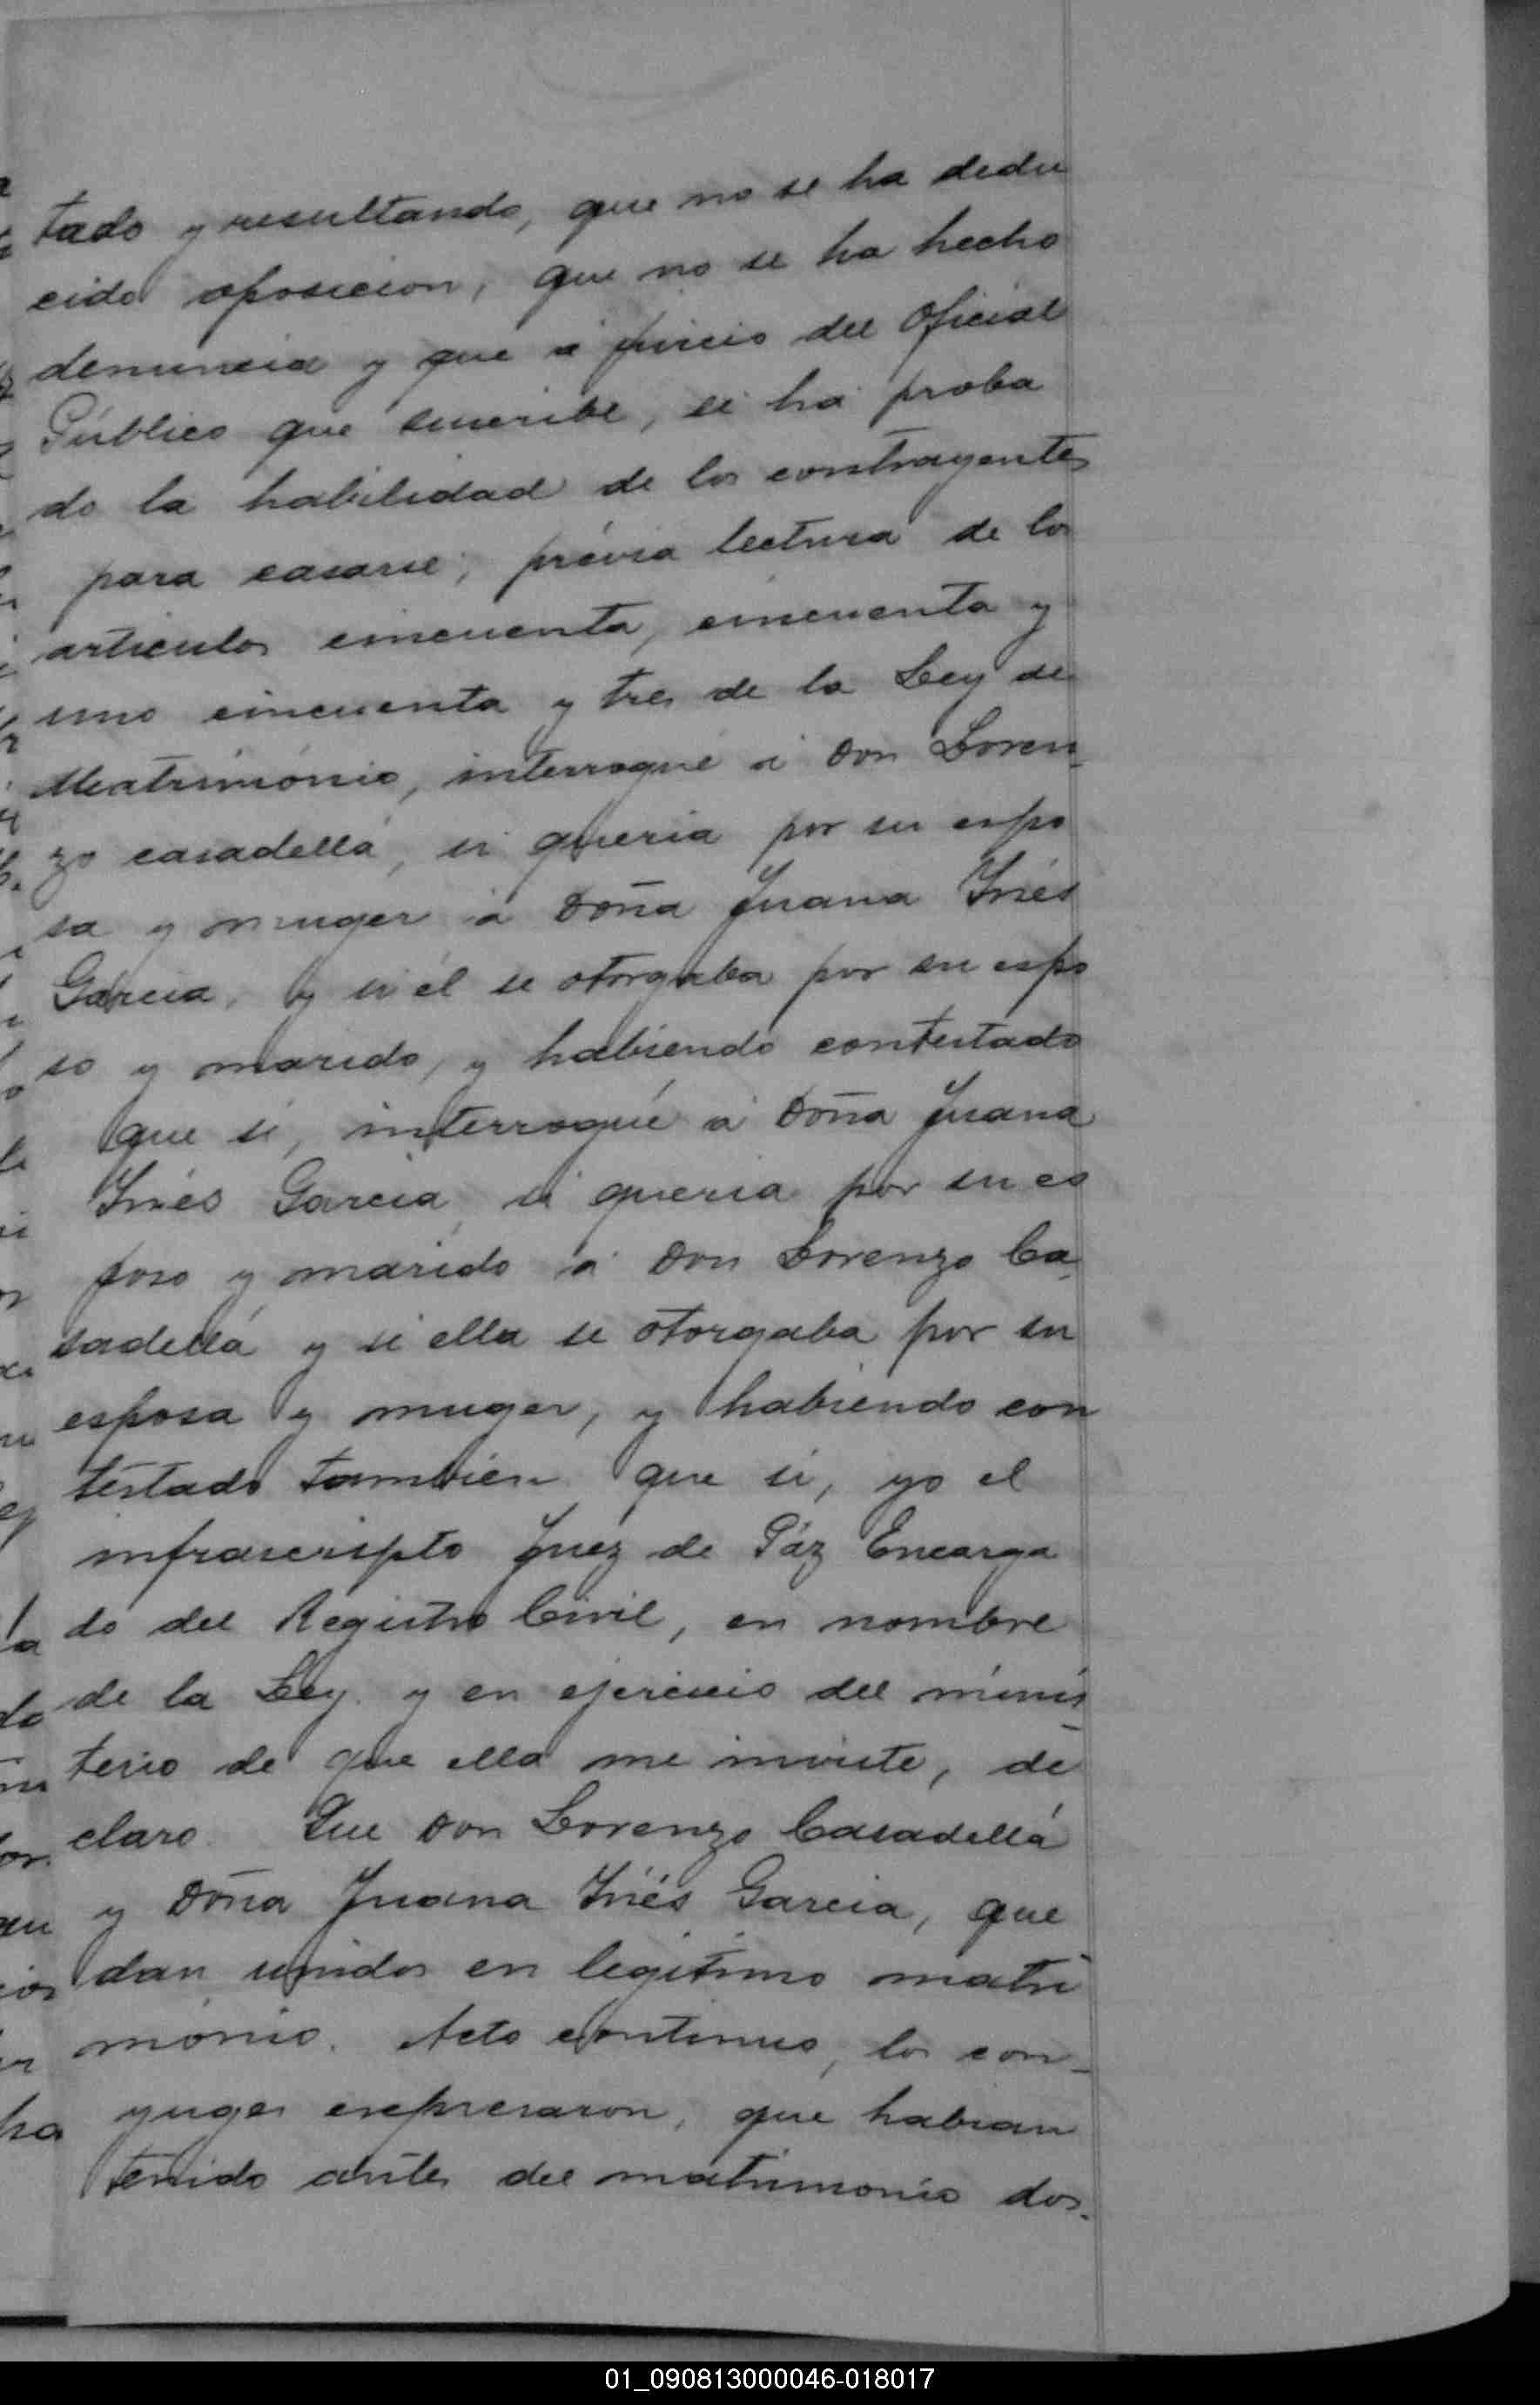 tado y resultando, que no se ha dedu
cido oposicion, que no se ha hecho
denuncia y que á juicio del Oficial
Público que suscribe, se ha proba
do la habilidad de los contrayentes
para casarse; prévia lectura de los
articulos cincuenta, cincuenta y
uno cincuenta y tres de la Ley de
Matrimónio, interrogué á Don Loren_
zo casadellá, si queria por su espo
sa y muger á Doña Juana Inés
Garcia, y si él se otorgaba por su espo
so y marido, y habiendo contestado
que si, interrogué á Doña Juana
Inés Garcia, si queria por su es
poso y marido á Don Lorenzo Ca_
sadellá y si ella se otorgaba por su
esposa y muger, y habiendo con
testado tambien que si, yo el
infrascripto Juez de Páz Encarga
do del Registro Civil, en nombre
de la Ley y en ejercicio del minis_
terio de que ella me inviste, de
claro. Que Don Lorenzo Casadellá
y Doña Juana Inés Garcia, que
dan unidos en legitimo matri
mónio. Acto continuo, los con_
yuges expresaron, que habian
tenido antes del matrimonio dos.
01_090813000046-018017